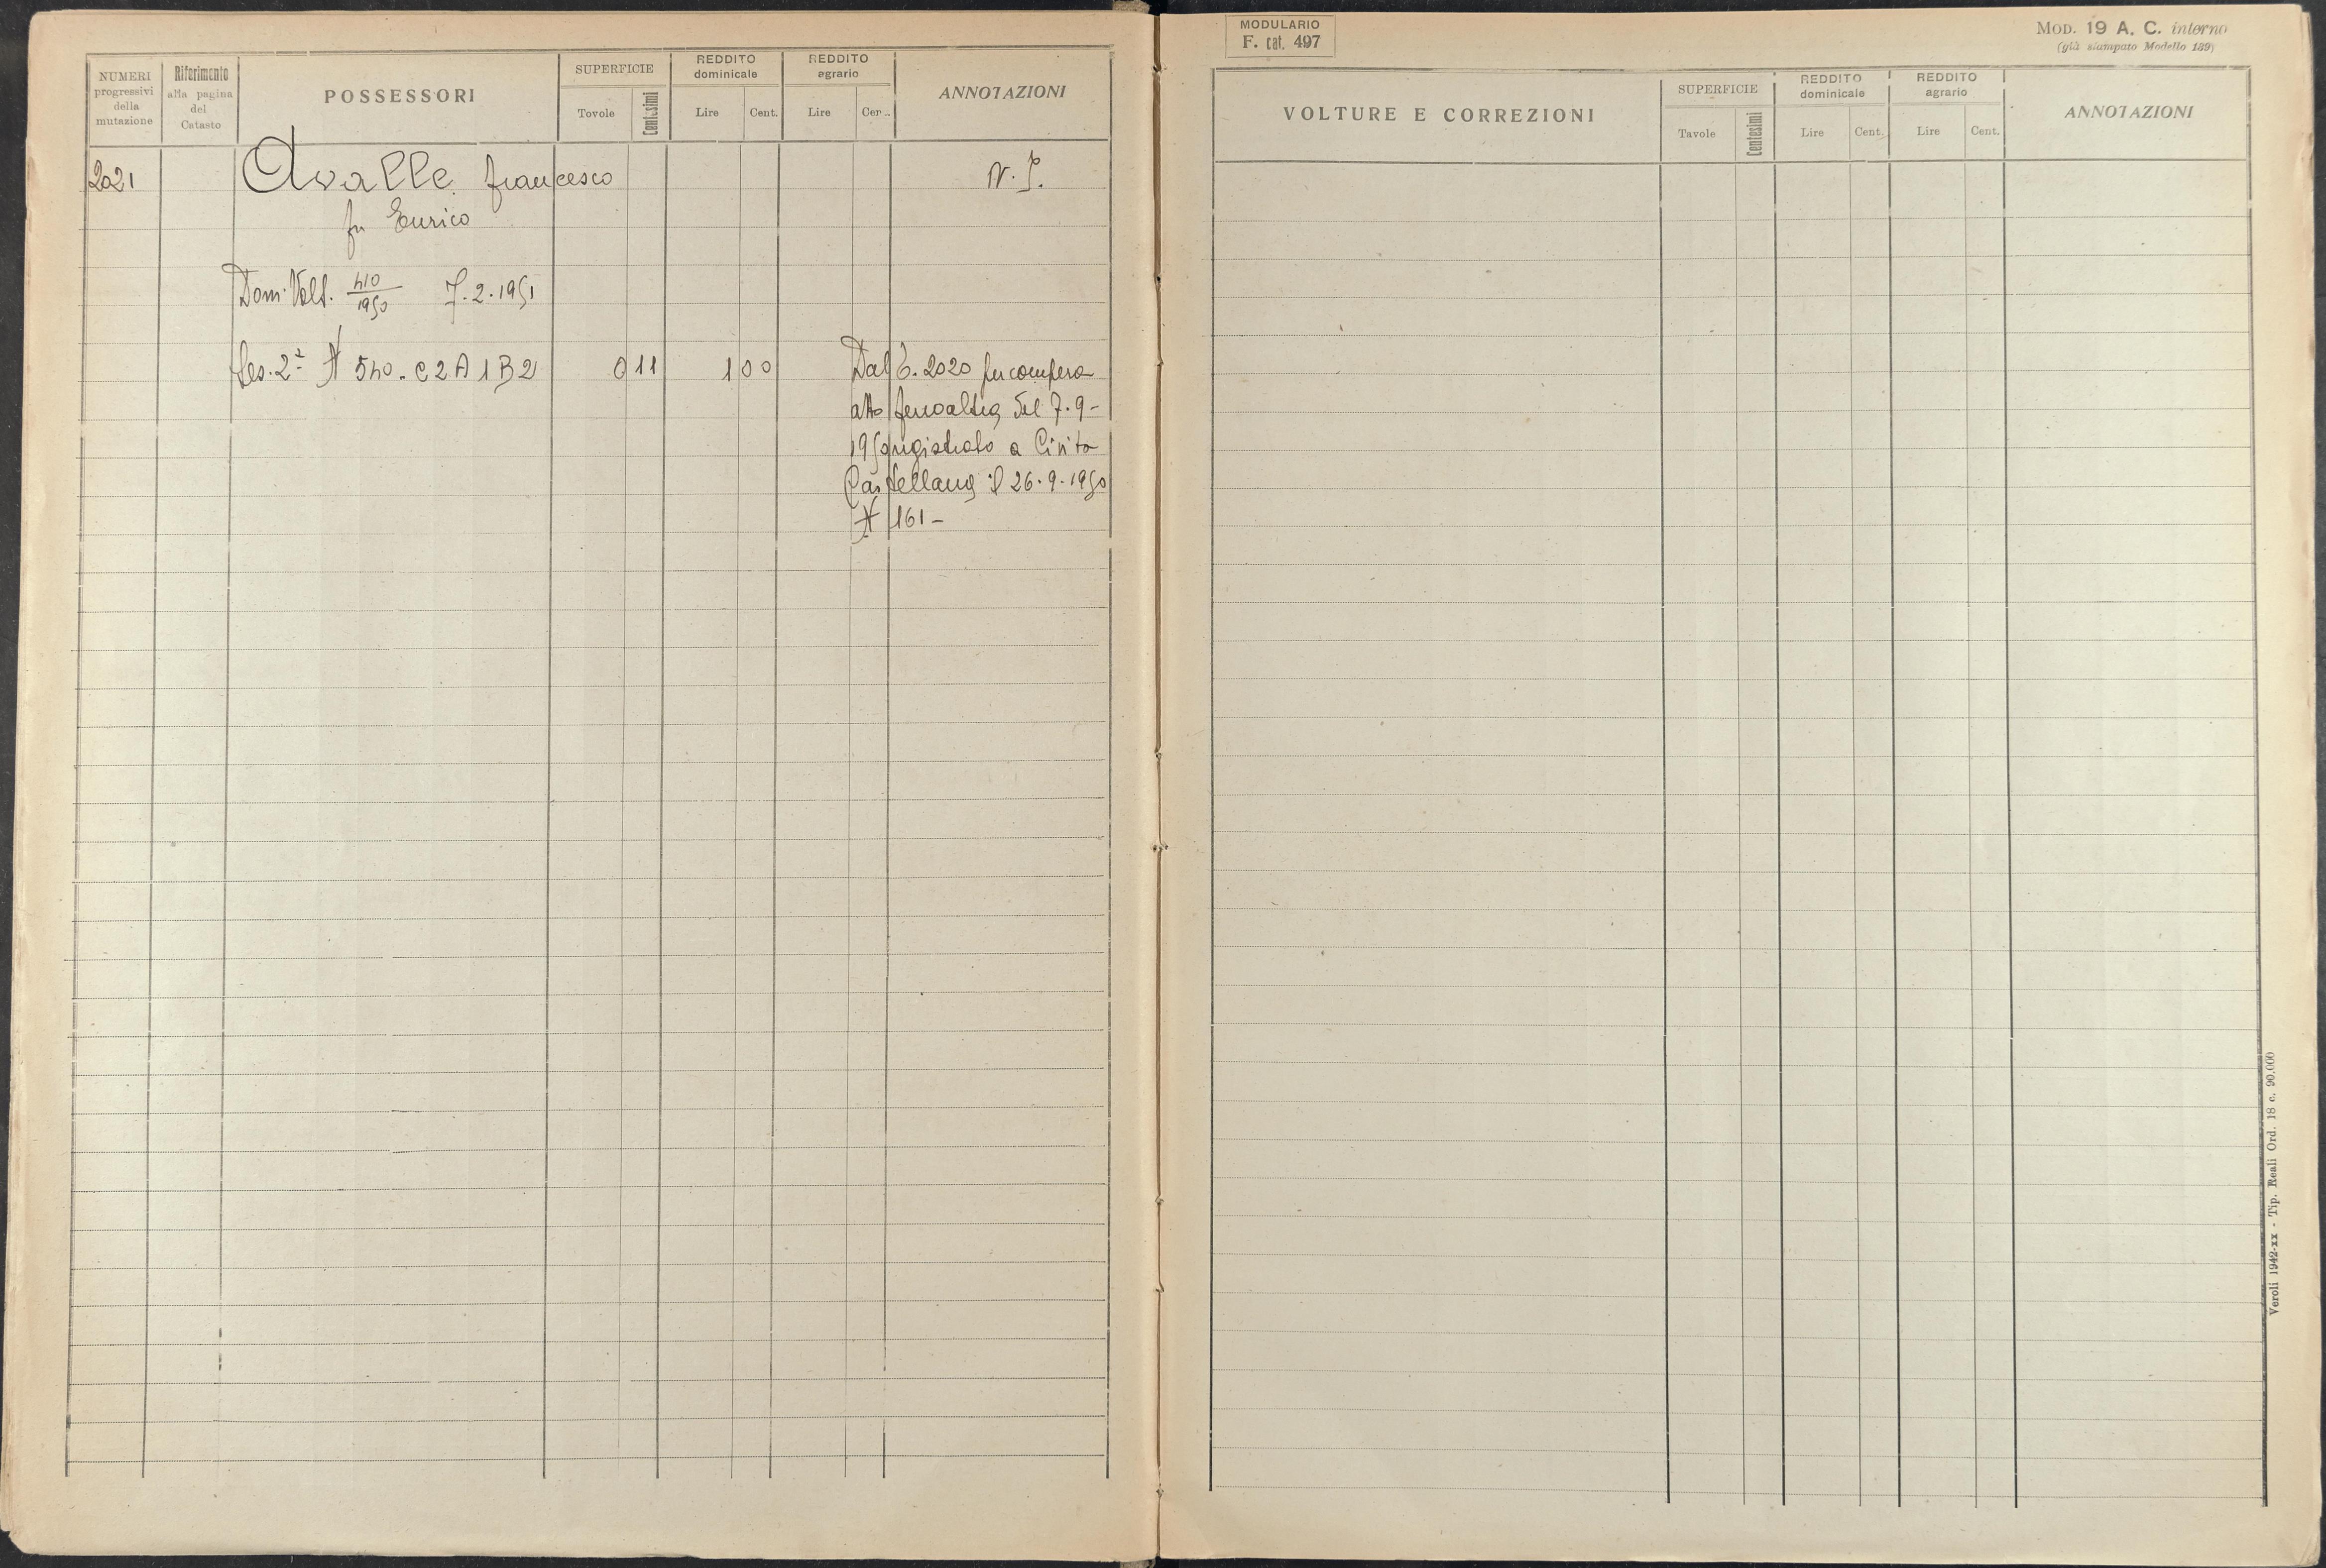 NUMERI progressivi della mutazione
Riferimento alla pagina del Catasto
POSSESSORI
SUPERFICIE
Tovole
Centesimi
REDDITO dominicale
Lire
Cent.
REDDITO agrario
Lire
Cer..
ANNOTAZIONI
2021
Avalle francesco
N.P.
fu Enrico
Dom. Volt. 410/1950 7.2.1951
Ses. 2ª N 540. C2A1B2 0 11 1 00
Dal C. 2020 per compera
atto del 7.9-
1950 registrato a Civita
Castellana il 26.9.1950
N 161-
MODULARIO
F. cat. 497
MOD. 19 A. C. interno
(già stampato Modello 189)
VOLTURE E CORREZIONI
SUPERFICIE
Tavole
Centesimi
REDDITO dominicale
Lire
Cent.
REDDITO agrario
Lire
Cent.
ANNOTAZIONI
Veroli 1942-XX - Tip. Reali Ord. 18 c. 90.000